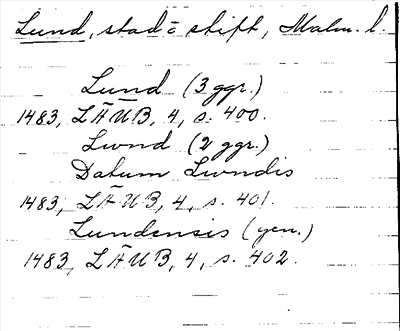 Lund, stad o. stift, Malm. l.
Lund (3 ggr.)
1483, LÄUB, 4, s. 400.
Lwnd (2 ggr.)
Datum Lwndis
1483, LÄUB, 4, s. 401.
Lundensis (gen.)
1483, LÄUB, 4, s. 402.